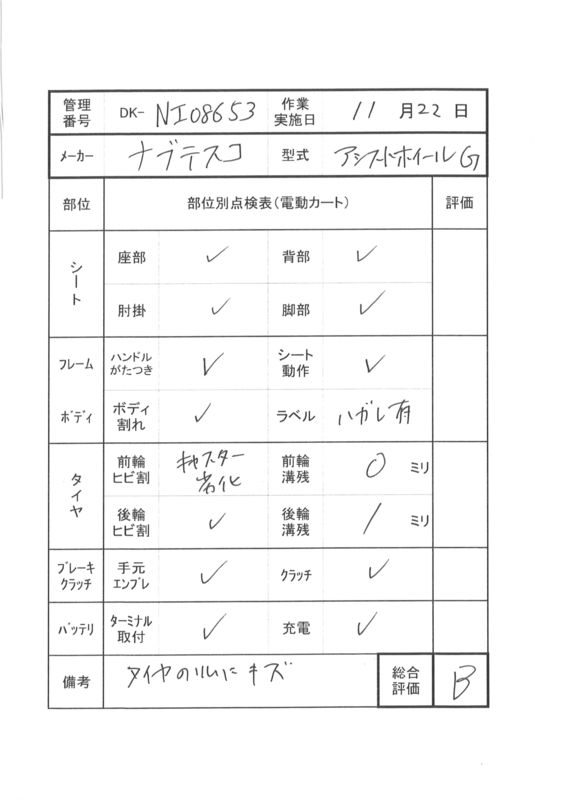 管理番号 DK- NI08653 作業実施日 11月22日
メーカー ナブテスコ 型式 アシストホイールG
部位 部位別点検表(電動カート) 評価
シート 座部 ✓ 背部 ✓
肘掛 ✓ 脚部 ✓
フレーム ハンドルがたつき ✓ シート動作 ✓
ボディ ボディ割れ ✓ ラベル ハガレ有
タイヤ 前輪ヒビ割 キャスター劣化 前輪溝残 0 ミリ
後輪ヒビ割 ✓ 後輪溝残 / ミリ
ブレーキクラッチ 手元エンブレ ✓ クラッチ ✓
バッテリ ターミナル取付 ✓ 充電 ✓
備考 タイヤのリムにキズ 総合評価 B